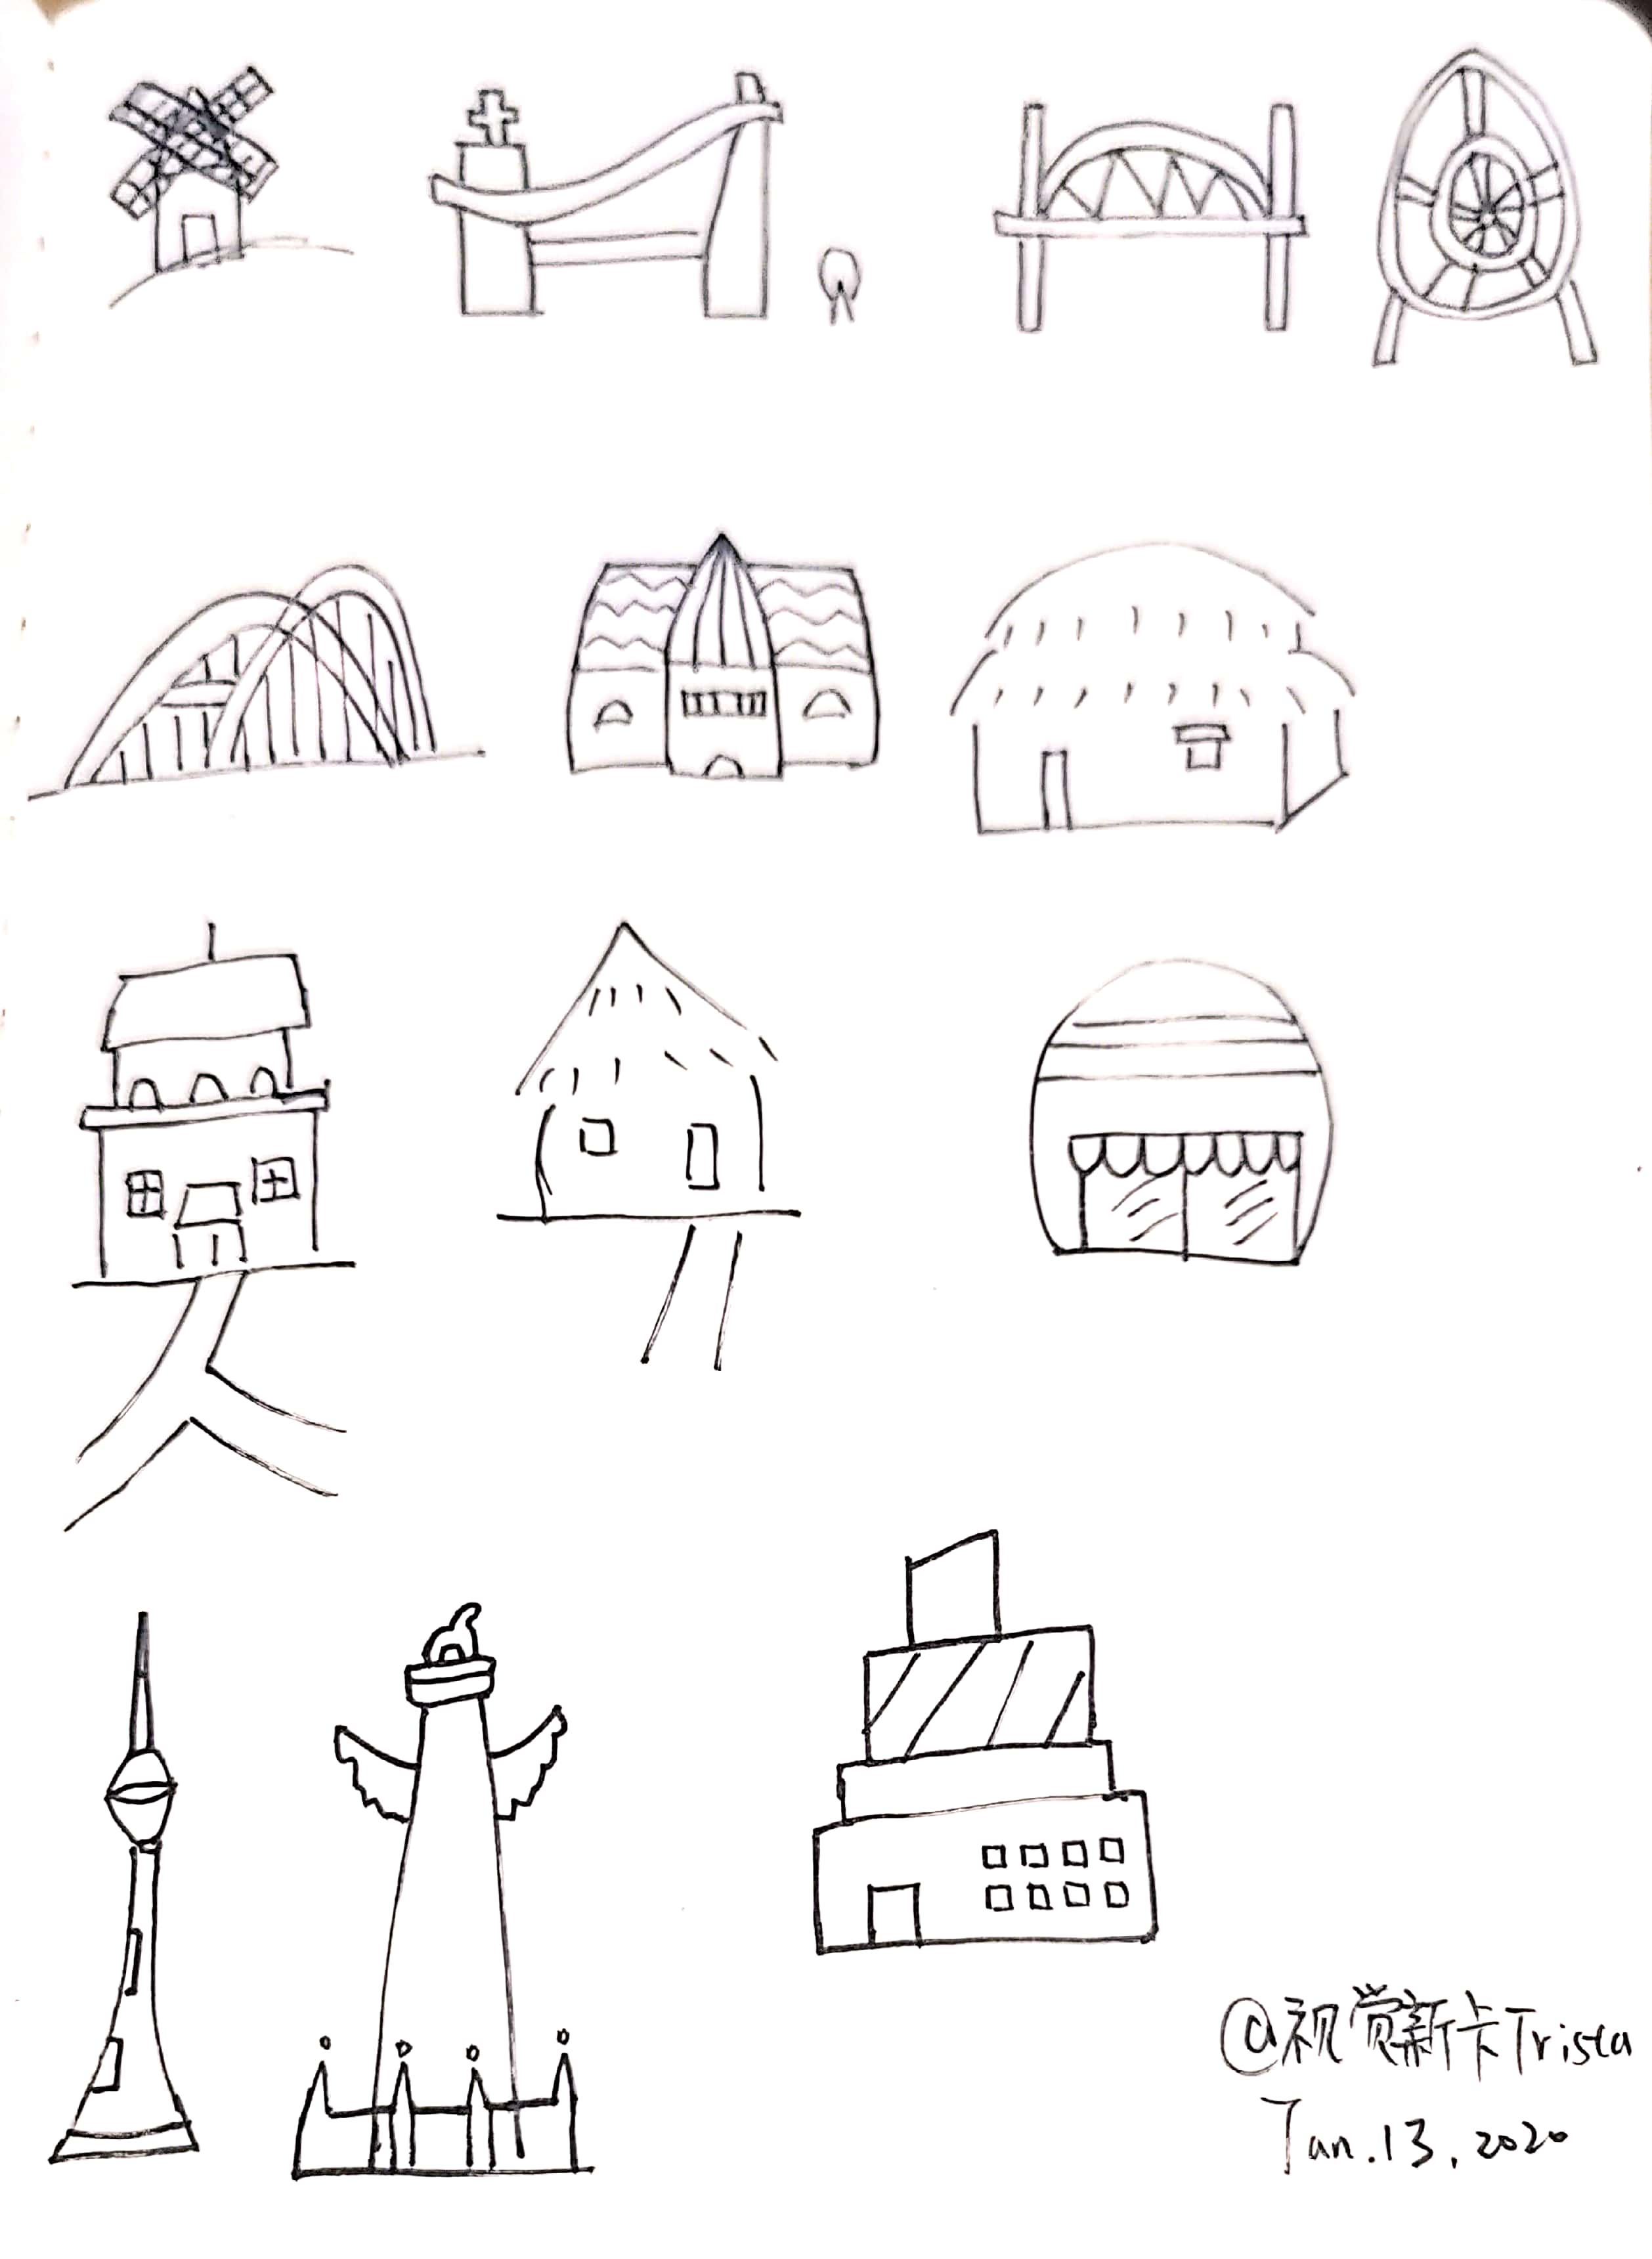 @视觉新卡Trista
Jan.13.2020